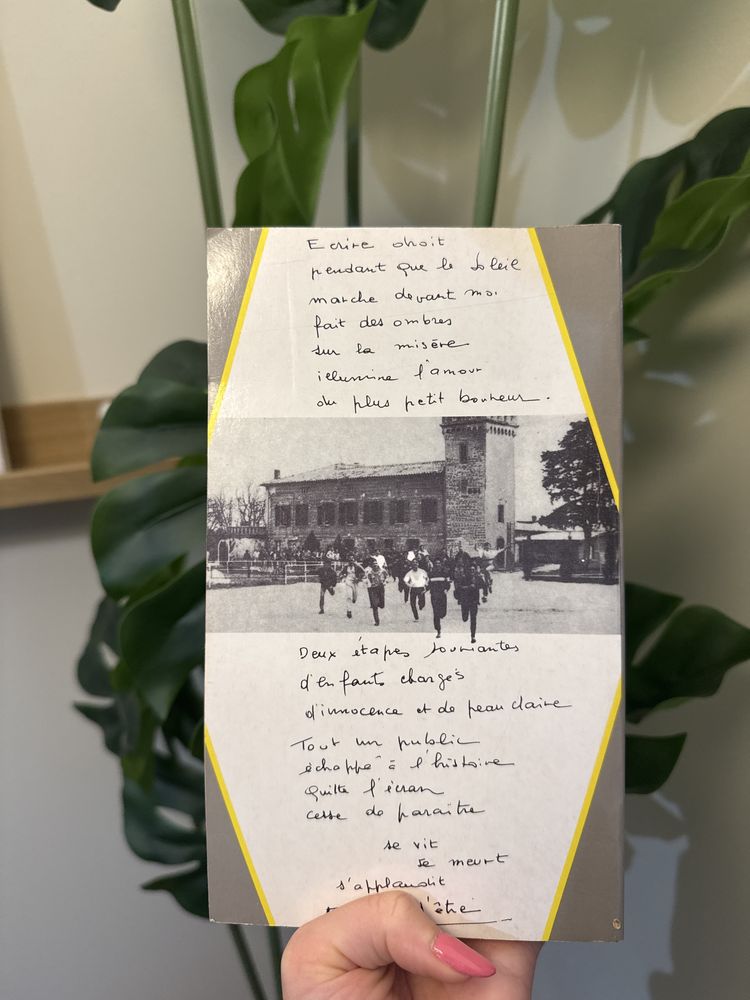 Ecrire droit
pendant que le soleil
marche devant moi
fait des ombres
sur la misère
illumine l'amour
du plus petit bonheur.
Deux étapes souriantes
d'enfants chargés
d'innocence et de peau claire
Tout un public
échappé à l'histoire
quitte l'écran
cesse de paraître
se vit
se meurt
s'applaudit